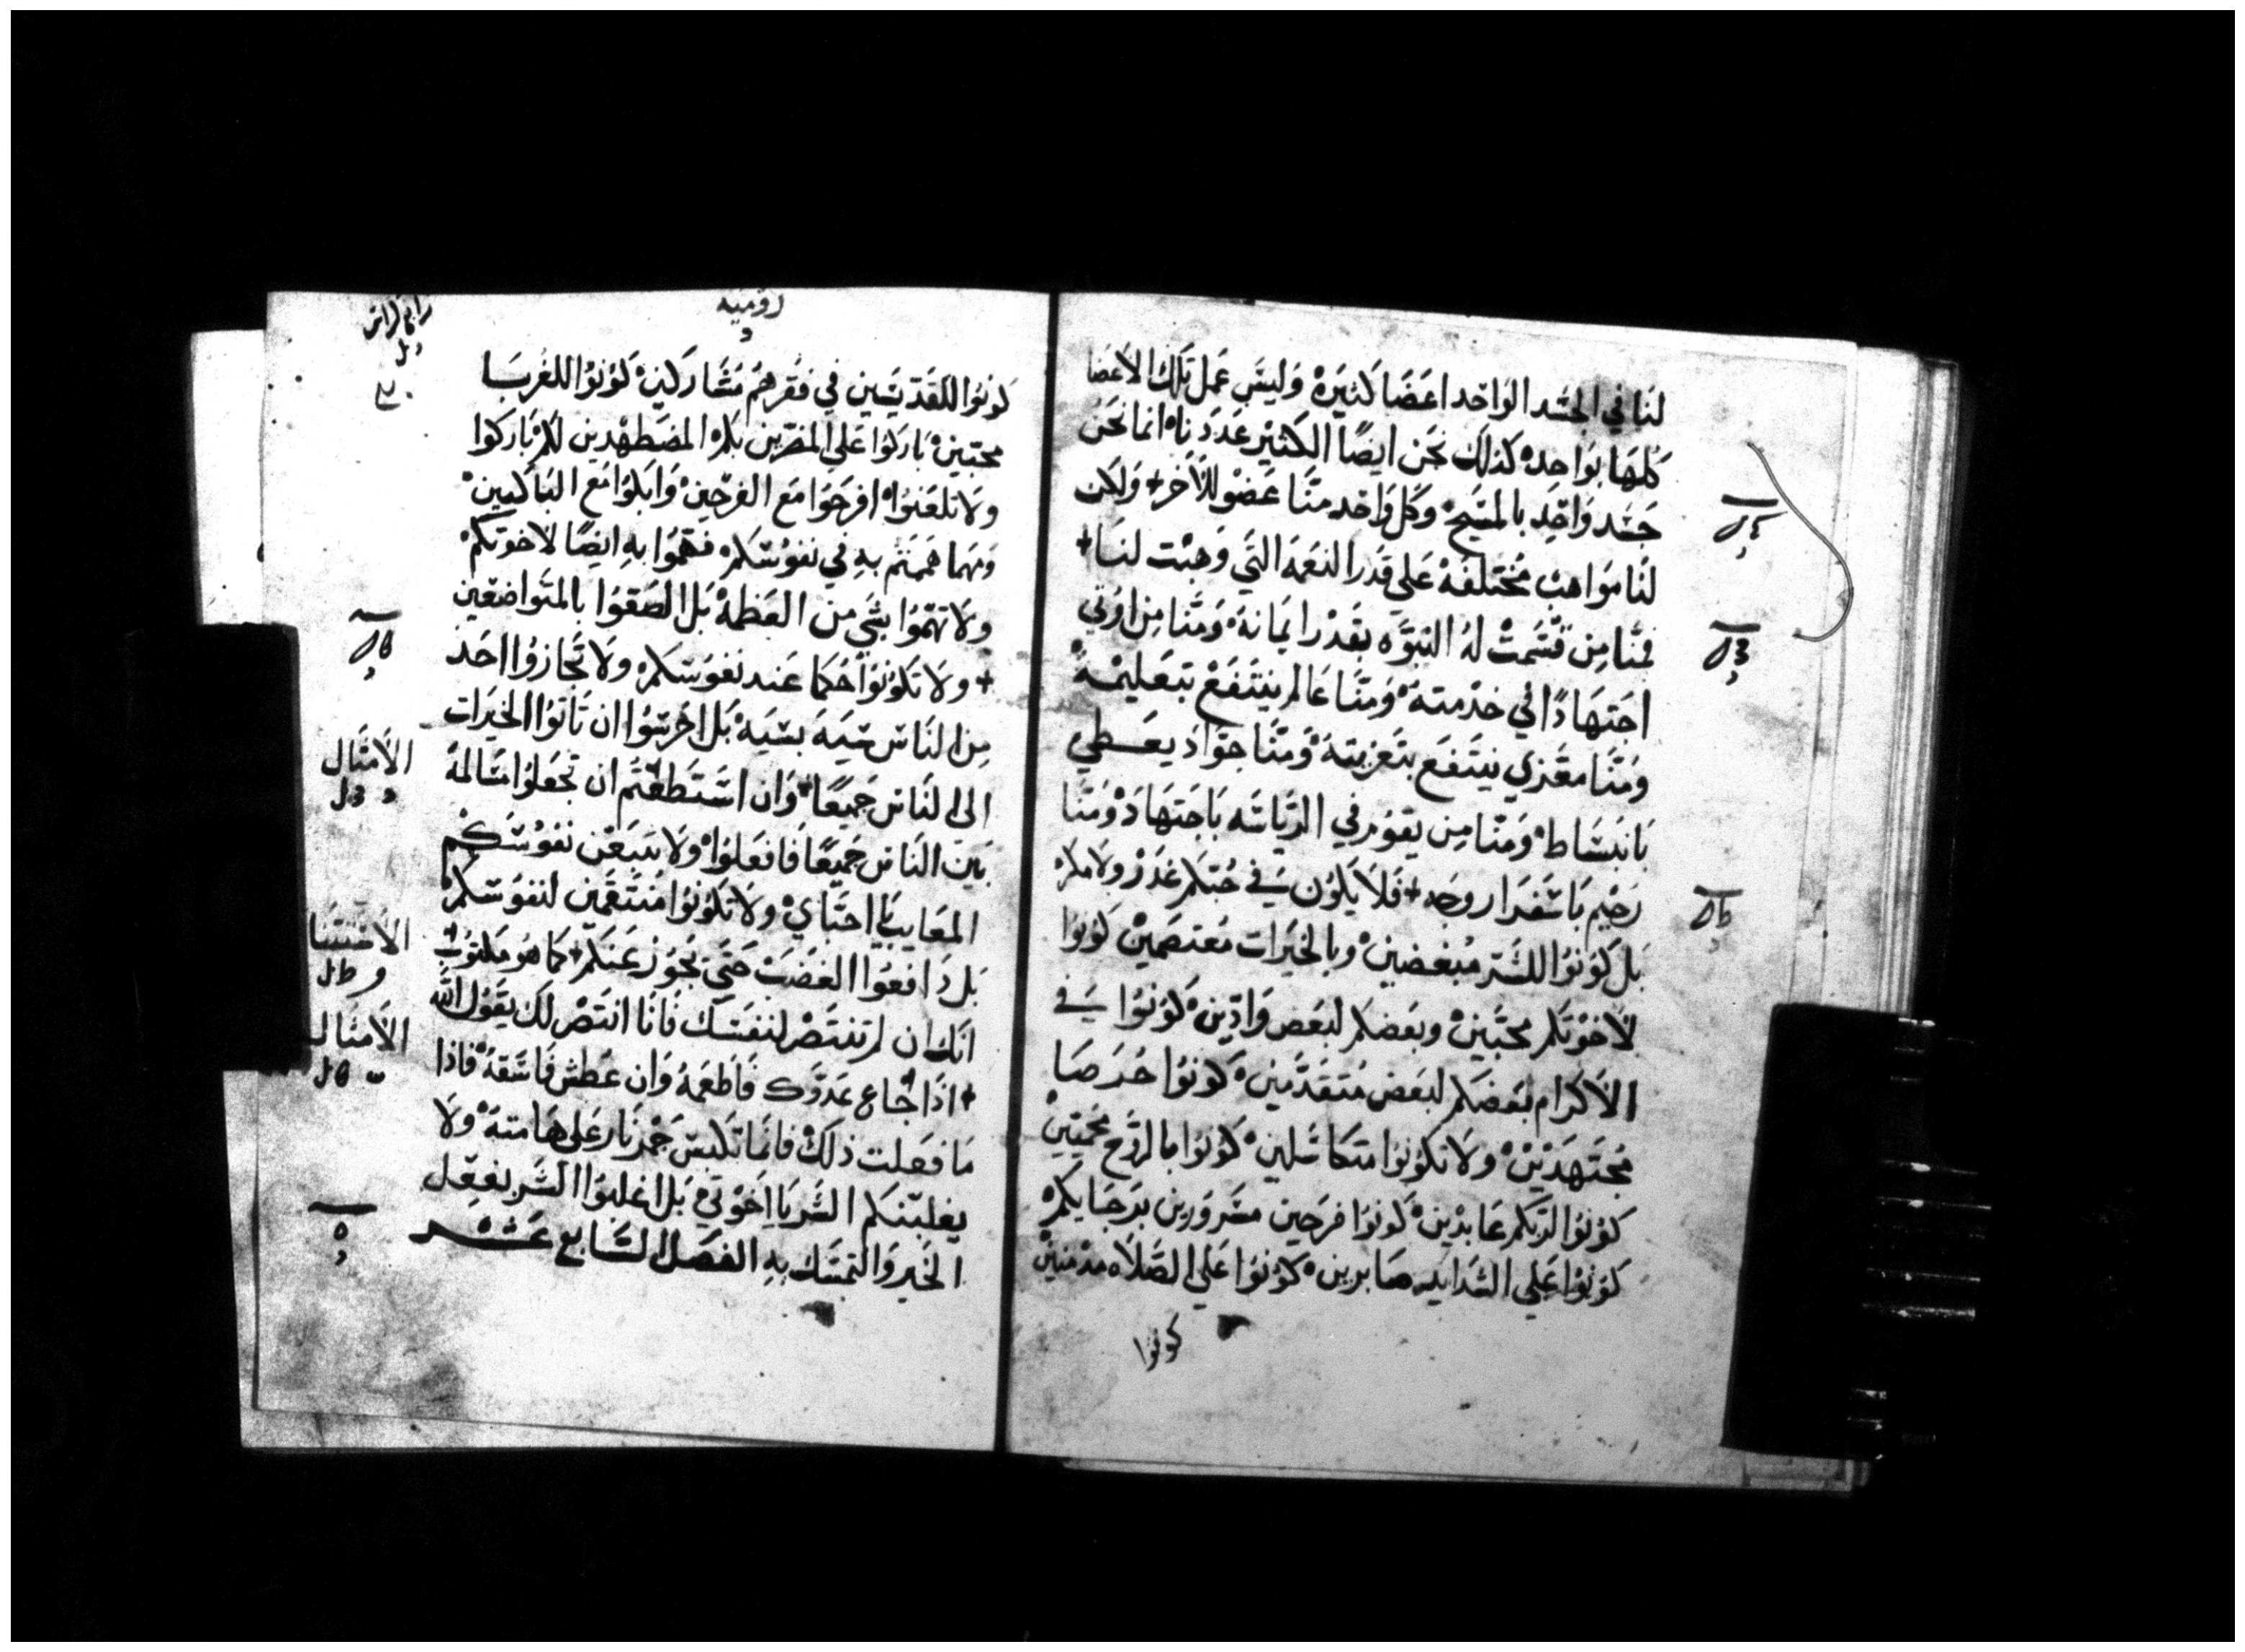 لنا في الجسد الواحد اعضا كثيره وليس عمل تلك الاعضا
كلها بواحده كذلك نحن ايضًا الكثير عددنا انما نحن
جسد واحد بالمسيح وكل واحد منا عضو للآخر + ولكن
لنا مواهب مختلفه علي قدر النعمه التي وهبت لنا +
فمنا من قسمت له النبوه بقدر ايمانه ومنا من اوتي
اجتهادًا في خدمته ومنا عالم ينتفع بتعليمه
ومنا معزي ينتفع بتعزيته ومنا جواد يعطي
بانبساط ومنا من يقوم في الرياسه باجتهاد ومنا
رحيم باسفرار وجه + فلا يكون في حبكم غدر ولا مكر
بل كونوا للشر مبغضين وبالخيرات معتصمين كونوا
لاخوتكم محبين وبعضكم لبعض وادين كونوا في
الاكرام بعضكم لبعض متقدمين كونوا حرصا
مجتهدين ولا تكونوا متكاسلين كونوا بالروح محميين
كونوا لربكم عابدين كونوا فرحين مسرورين برجايكم
كونوا علي الشدايد صابرين كونوا علي الصلاه مدمنين
كونوا
روميه
كونوا للقديسين في فقرهم مشاركين كونوا للغربا
محبين باركوا علي المضرين بكم المضطهدين لكم باركوا
ولا تلعنوا افرحوا مع الفرحين وابكوا مع الباكيين
ومهما هممتم به في نفوسكم فهموا به ايضًا لاخوتكم
ولا تهتموا بشي من العظمه بل الصقوا بالمتواضعين
+ ولا تكونوا حكما عند نفوسكم ولا تجازوا احد
من الناس سيه بسيه بل احرسوا ان تاتوا الخيرات
الي الناس جميعًا وان استطعتم ان تجعلوا مسالمة
بين الناس جميعًا فافعلوا ولا تتبعن نفوسكم
المعايب يا احباي ولا تكونوا منتقمين لنفوسكم
بل دافعوا الغضب حتي يجوز عنكم + كما هو مكتوب
انك ان لم تنتصر لنفسك فانا انتصر لك يقول الله
+ اذا جاع عدوك فاطعمه وان عطش فاسقه فاذا
ما فعلت ذلك فانما تكبس جمر نار علي هامته ولا
يغلبنكم الشر يا اخوتي بل اغلبوا الشر بفعل
الخير والتمسك به الفصل السابع عشر
الامثال
الاستثنا
الامثال